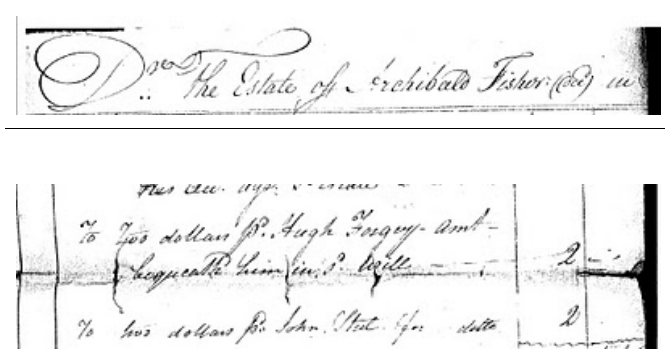 Dr. The Estate of Archibald Fisher (Decd) in
To Two dollars pd. Hugh Forgey - Amt -
bequeathd him in sd. Will - 2 -
To two dollars pd. John for ditto 2